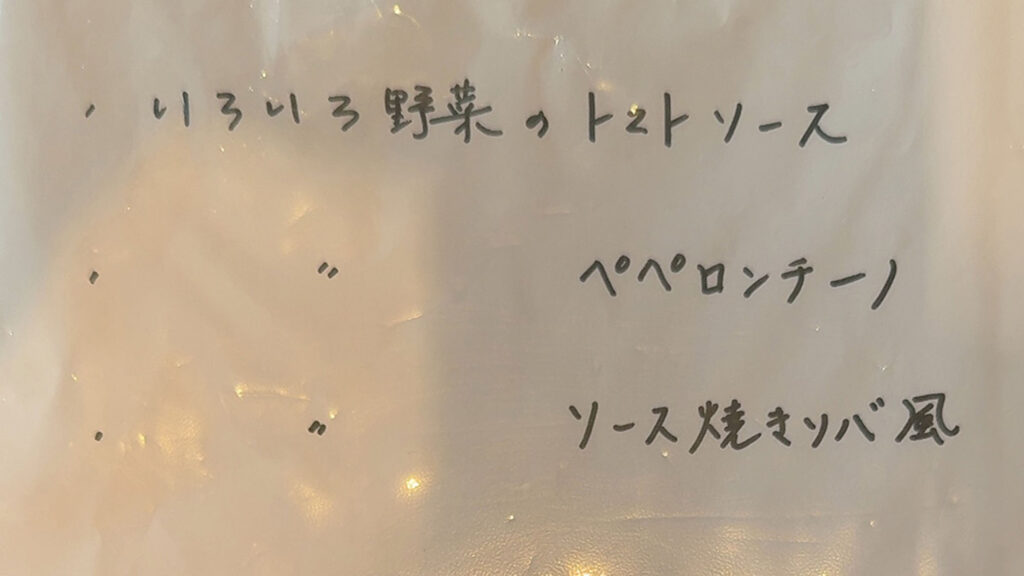 ・いろいろ野菜のトマトソース
・〃 ペペロンチーノ
・〃 ソース焼きソバ風